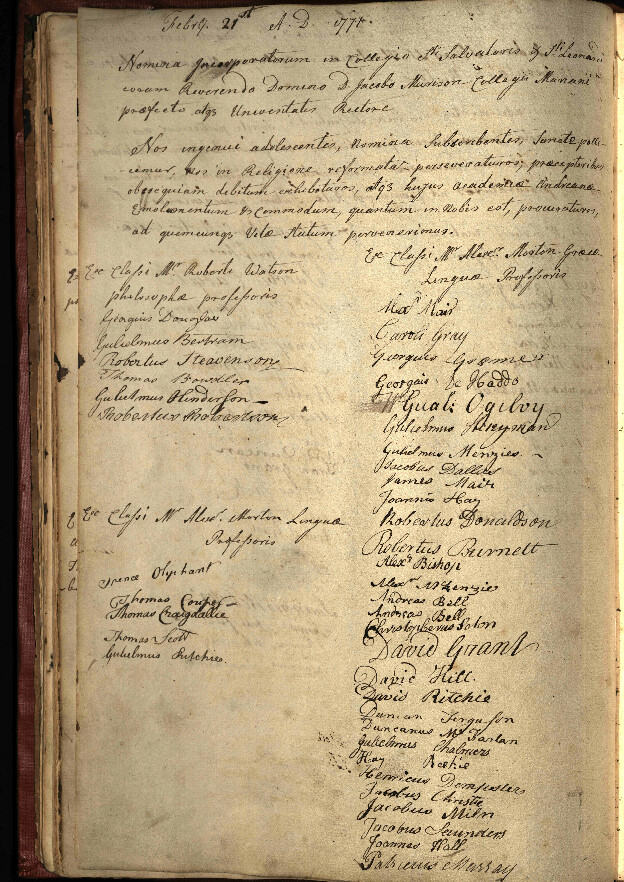 Febry. 21st A. D. 1771.
Nomina Incorporatorum in Collegio Sti Salvatoris & Sti Leonardi
coram Reverendo Domino D. Jacobo Murison Collegii Mariani
præfecto atqs Universitatis Rectore
Nos ingenui adolescentes, Nomina Subscribentes, Sancte polli-
cemur, nos in Religione reformata perseveraturos; præceptoribus
obsequium debitum exhibituros, Atqs hujus academiæ Andreanæ
Emolumentum & Commodum, quantum in Nobis est, procuraturos,
ad quemcunqs Vitæ Statum pervenerimus.
Ex Classi Mri Roberti Watson
philosophæ professoris
Georgius Douglas
Gulielmus Bertram
Robertus Steavenson
Thomas
Gulielmus Henderson
Robertus Robertson
Ex Classi Mri Alexr. Morton Linguæ
Professoris
Oliphant
Thomas Couper
Thomas Craigdallie
Thomas Scott
Gulielmus Ritchies.
Ex Classi Mri Alexr. Morton Græcæ
Linguæ Professoris
Alexr Mair
Caroli Gray
Georgius Græme
Georgius De Haddo
Gualt: Ogilvy
Gulielmus
Gulielmus Menzies
Jacobus Dallas
James Mair
Joannis Hay
Robertus Donaldson
Robertus Burnett
Alexr Bishop
Alexr McKenzie
Andreas Bell
Andreas Bell
Christopherus Seton
David Grant
David Hill.
David Ritchie
Duncan Ferguson
Duncanus McFarlan
Gulielmus Chalmers
Hay
Henricus Dempster
Jacobus Christie
Jacobus Miln
Jacobus Saunders
Joannes Hall
Patricius Murray